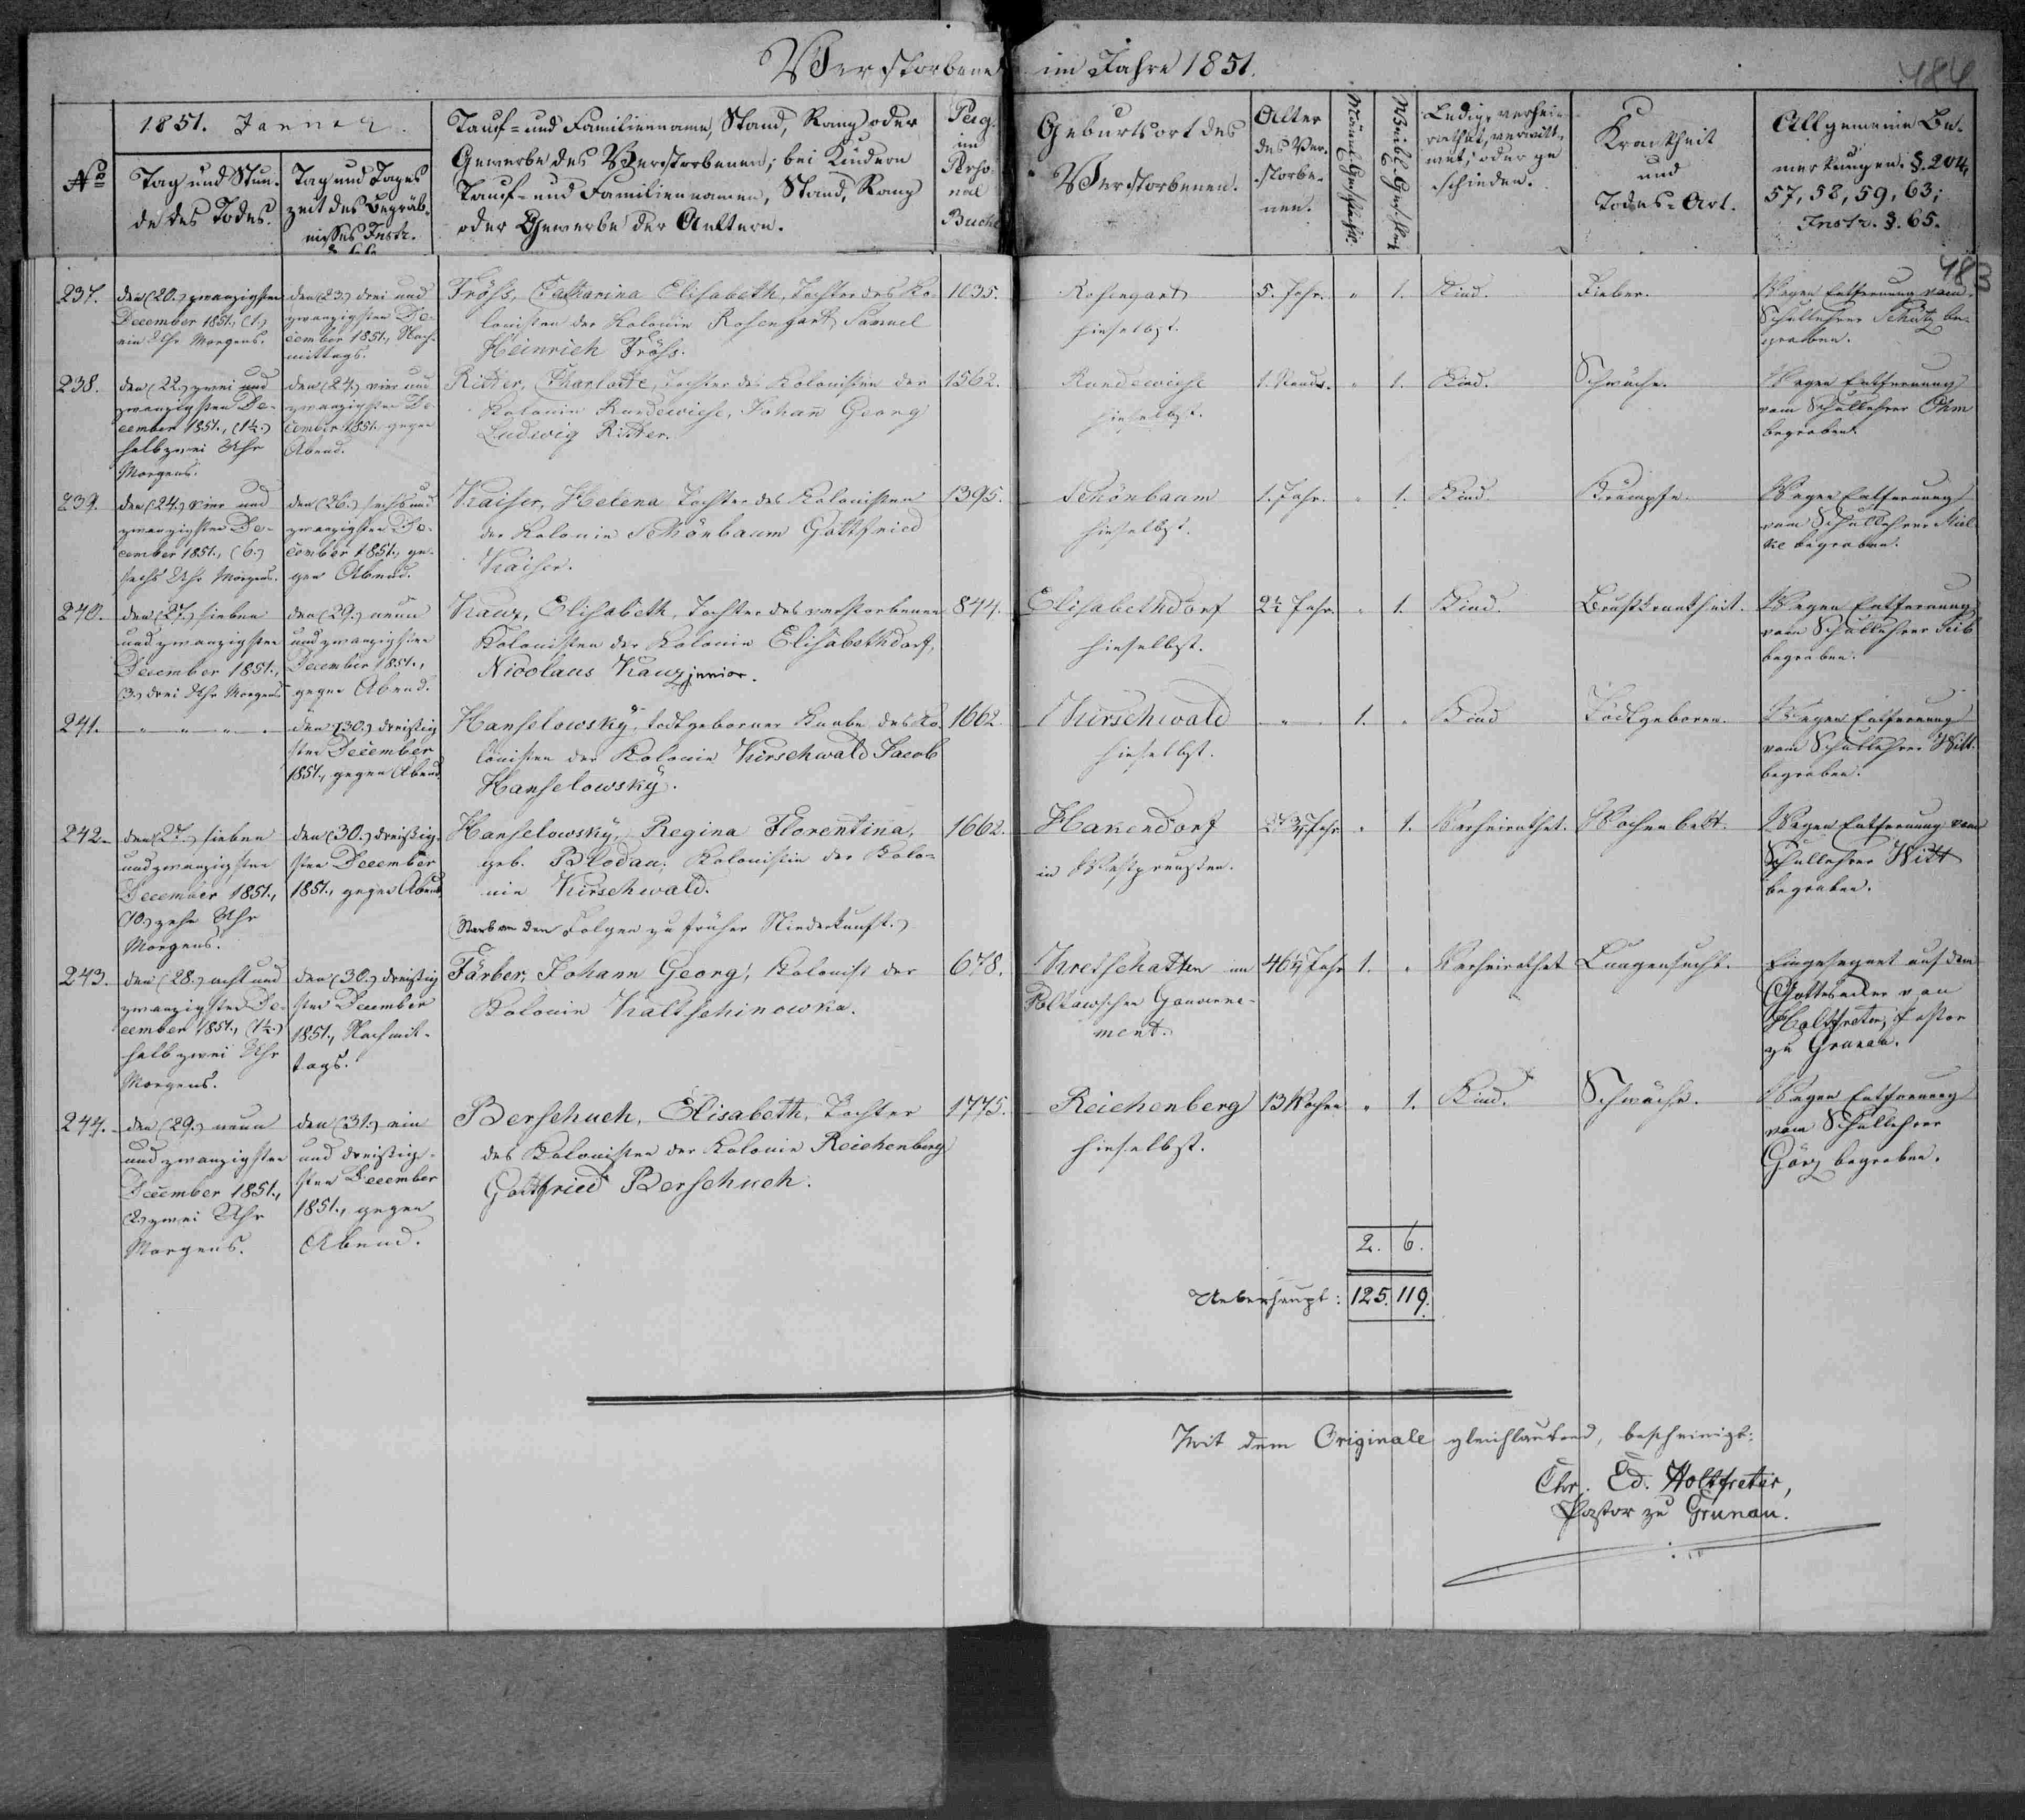 Verstorbene im Jahre 1851.
184
No
1851. Januar
Tag und Stun-
de des Todes.
Tag und Tages
zeit des Begräb-
nisses Instr.
Tauf- und Familienname, Stand, Rang oder
Gewerbe des Verstorbenen; bei Kindern
Tauf- und Familiennamen, Stand, Rang
oder Gewerbe der Aeltern.
Pag.
im
Perso-
nal
Buche
Geburtsort des
Verstorbenen.
Alter
des Ver-
storbe-
nen.
Männl. Geschlecht.
Weibl. Geschlecht
Ledig, verhei-
rathet, verwitt-
wet, oder ge
schieden.
Krankheit
und
Todes-Art.
Allgemeine Be-
merkungen. §. 204,
57, 58, 59, 63;
Instr. §. 65.
183
237.
den (20.) zwanzigsten
December 1851., (1.)
ein Uhr Morgens.
den (23.) drei und
zwanzigsten De-
cember 1851., Nach-
mittags.
Fröhs, Catharina Elisabeth, Tochter des Ko-
lonisten der Kolonie Rosengart, Samuel
Heinrich Fröhs.
1035.
Rosengart
hieselbst.
5. Jahr.
"
1.
Kind.
Fieber.
Wegen Entfernung vom
Schullehrer Schütz be-
graben.
238.
den (22.) zwei und
zwanzigsten De-
cember 1851., (1½.)
halb zwei Uhr
Morgens.
den (24.) vier und
zwanzigsten De-
cember 1851. gegen
Abend.
Ritter, Charlotte, Tochter des Kolonisten der
Kolonie Rundewiese, Johann Georg
Ludwig Ritter.
1562.
Rundewiese
hieselbst.
1. Stunde.
"
1.
Kind.
Schwäche.
Wegen Entfernung
vom Schullehrer Ohm
begraben.
239.
den (24.) vier und
zwanzigsten De-
cember 1851., (6.)
sechs Uhr Morgens.
den (26.) sechs und
zwanzigsten De-
cember 1851., ge-
gen Abend.
Kaiser, Helena Tochter des Kolonisten
der Kolonie Schönbaum Gottfried
Kaiser.
1395.
Schönbaum
hieselbst.
1. Jahr.
"
1.
Kind.
Krämpfe.
Wegen Entfernung
vom Schullehrer Miel-
ke begraben.
240.
den (27.) sieben
und zwanzigsten
December 1851.,
(3.) drei Uhr Morgens
den (29.) neun
und zwanzigsten
December 1851.,
gegen Abend.
Kanz, Elisabeth, Tochter des verstorbenen
Kolonisten der Kolonie Elisabethdorf,
Nicolaus Kanz junior.
844.
Elisabethdorf
hieselbst.
2½ Jahr.
"
1.
Kind.
Brustkrankheit.
Wegen Entfernung
vom Schullehrer Seib
begraben.
241.
" " " "
den (30.) dreißig
sten December
1851., gegen Abend.
Hanselowsky, todtgeborner Knabe des Ko
lonisten der Kolonie Kirschwald Jacob
Hanselowsky.
1662.
Kirschwald
hieselbst.
"
1.
"
Kind
Todtgeboren.
Wegen Entfernung
vom Schullehrer Witt
begraben.
242.
den (27.) sieben
und zwanzigsten
December 1851.,
(10.) zehn Uhr
Morgens.
den (30.) dreißig-
sten December
1851., gegen Abend.
Hanselowsky, Regina Florentina,
geb. Blodau, Kolonistin der Kolo-
nie Kirschwald.
(Starb an den Folgen zu früher Niederkunft.)
1662.
Hakendorf
in Westpreußen.
Jahr
"
1.
Verheirathet.
Wochenbett.
Wegen Entfernung vom
Schullehrer Witt
begraben.
243.
den (28.) acht und
zwanzigsten De-
cember 1851., (1½.)
halb zwei Uhr
Morgens.
den (30.) dreißig
sten December
1851., Nachmit-
tags.
Färber, Johann Georg, Kolonist der
Kolonie Kaltschinowka.
678.
Kretschatten im
Poltawschen Gouverne-
ment.
46½ Jahr
1.
"
Verheirathet
Lungensucht.
Eingesegnet auf dem
Gottesacker von
Holtfreter, Pastor
zu Grunau.
244.
den (29.) neun
und zwanzigsten
December 1851.,
(2.) zwei Uhr
Morgens.
den (31.) ein
und dreißig-
sten December
1851., gegen
Abend.
Berschuch, Elisabeth, Tochter
des Kolonisten der Kolonie Reichenberg
Gottfried Berschuch.
1775.
Reichenberg
hieselbst.
13 Wochen
"
1.
Kind.
Schwäche.
Wegen Entfernung
vom Schullehrer
Görz begraben.
2. 6.
Ueberhaupt: 125. 119.
Mit dem Originale gleichlautend, bescheinigt:
Chr. Ed. Holtfreter,
Pastor zu Grunau.